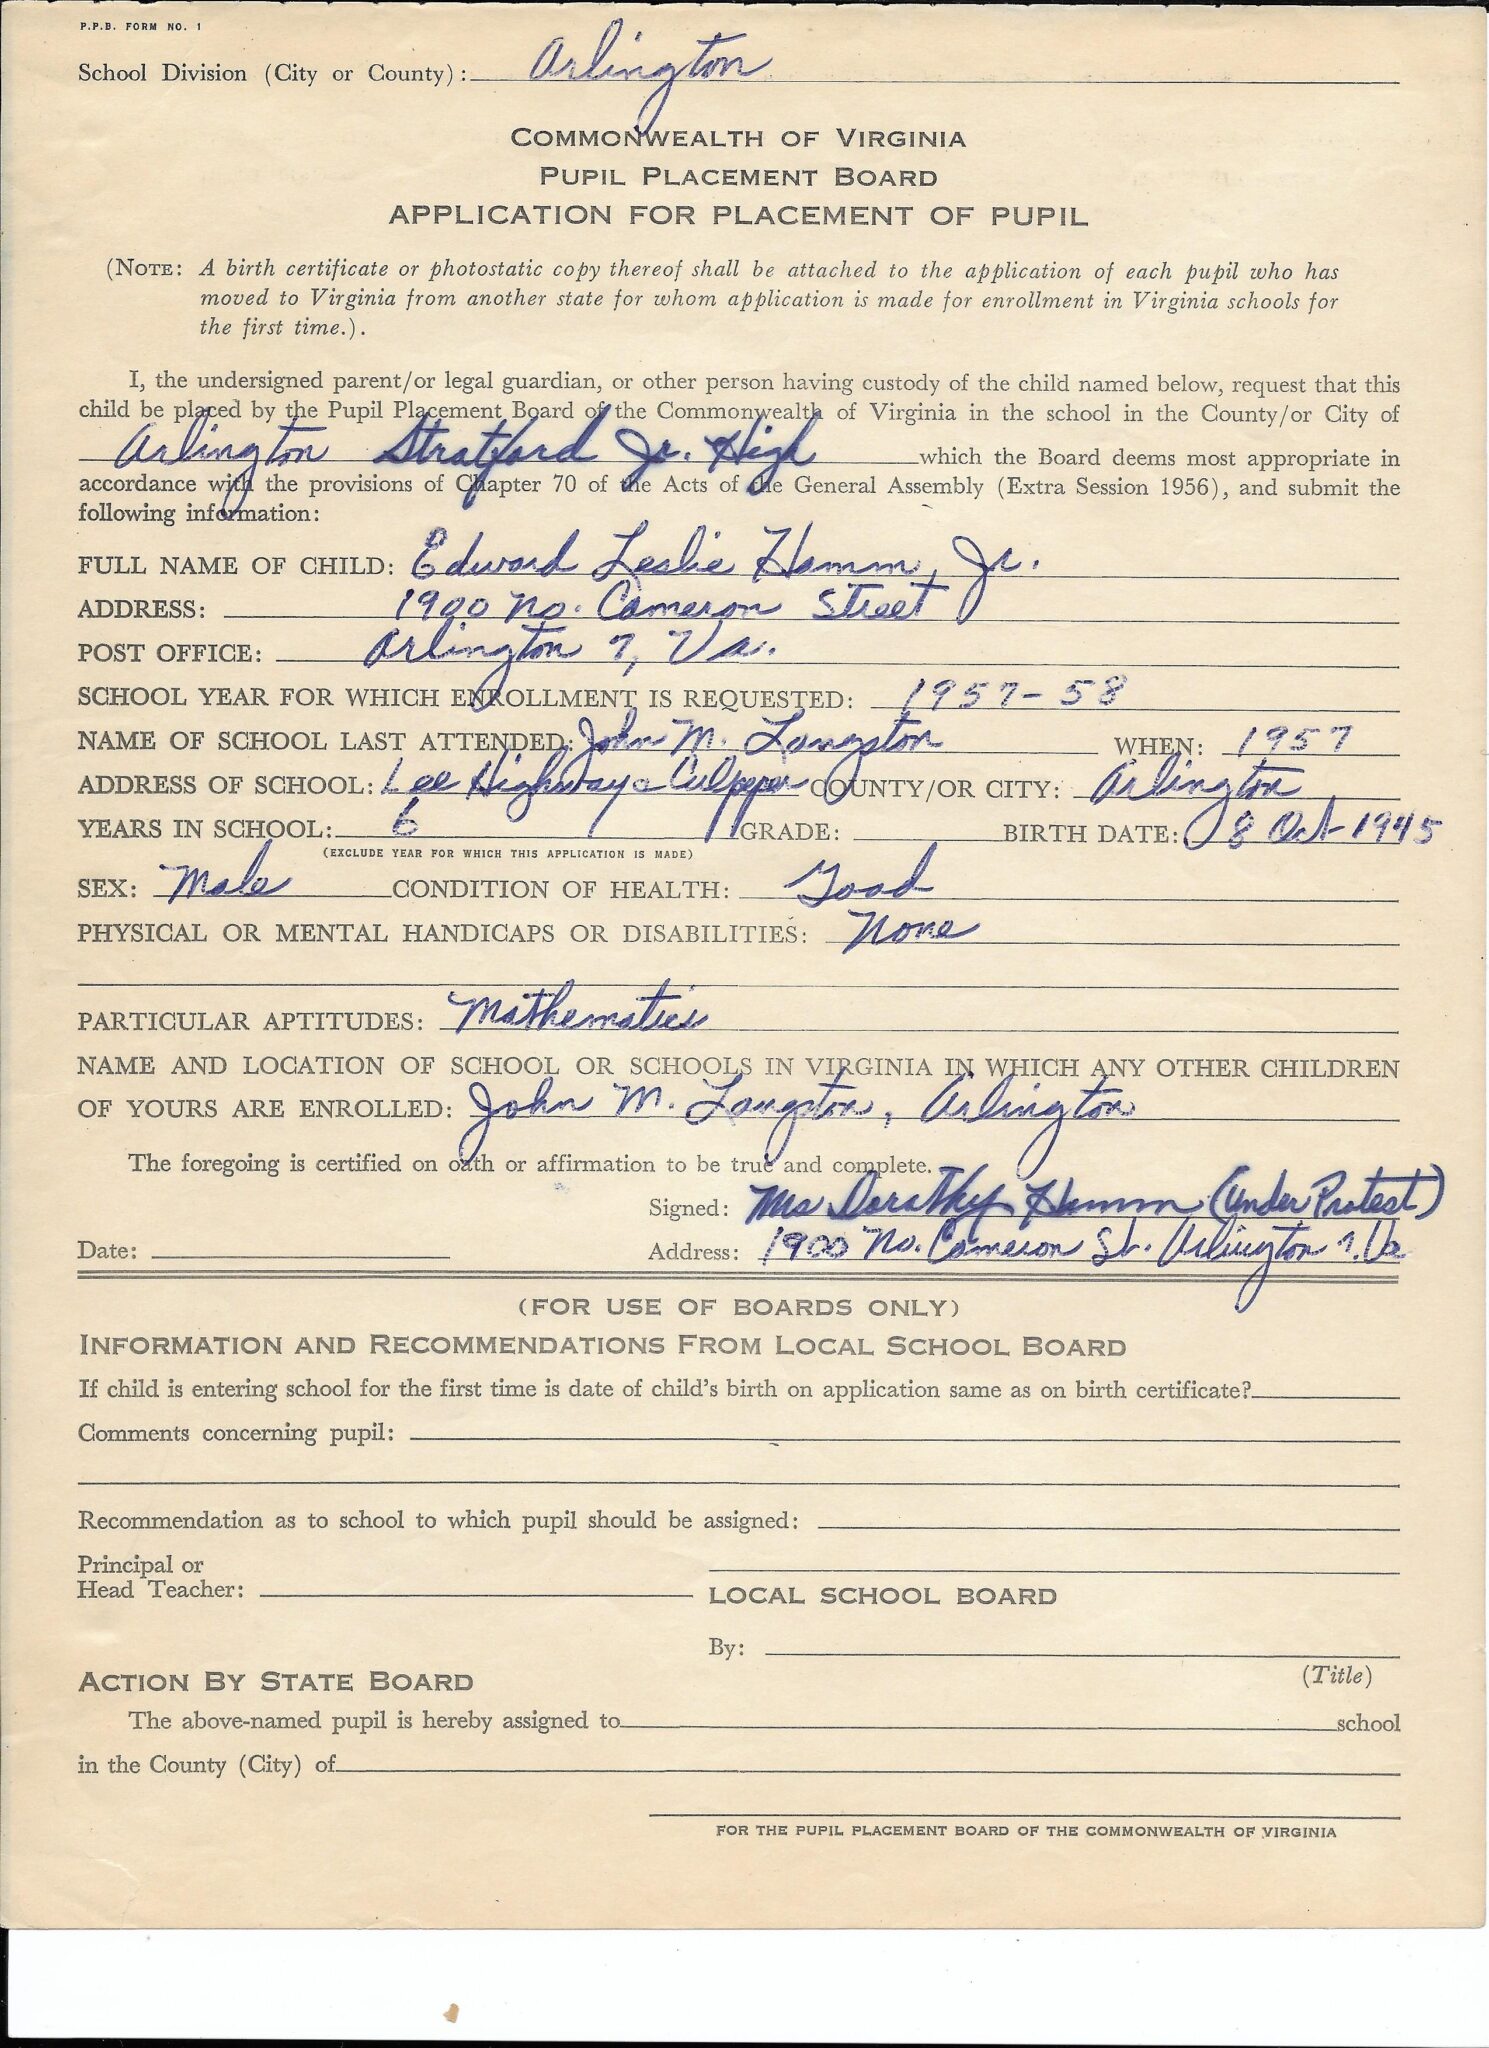 P.P.B. FORM NO. 1
School Division (City or County): Arlington
COMMONWEALTH OF VIRGINIA
PUPIL PLACEMENT BOARD
APPLICATION FOR PLACEMENT OF PUPIL
(NOTE: A birth certificate or photostatic copy thereof shall be attached to the application of each pupil who has
moved to Virginia from another state for whom application is made for enrollment in Virginia schools for
the first time.).
I, the undersigned parent/or legal guardian, or other person having custody of the child named below, request that this
child be placed by the Pupil Placement Board of the Commonwealth of Virginia in the school in the County/or City of
Arlington Stratford Jr. High which the Board deems most appropriate in
accordance with the provisions of Chapter 70 of the Acts of the General Assembly (Extra Session 1956), and submit the
following information:
FULL NAME OF CHILD: Edward Leslie Hamm, Jr.
ADDRESS: 1900 No. Cameron Street
POST OFFICE: Arlington 7, Va.
SCHOOL YEAR FOR WHICH ENROLLMENT IS REQUESTED: 1957-58
NAME OF SCHOOL LAST ATTENDED: John M. Langston WHEN: 1957
ADDRESS OF SCHOOL: Lee Highway & Culpeper COUNTY/OR CITY: Arlington
YEARS IN SCHOOL: 6 GRADE: BIRTH DATE: 8 Oct 1945
(EXCLUDE YEAR FOR WHICH THIS APPLICATION IS MADE)
SEX: Male CONDITION OF HEALTH: Good
PHYSICAL OR MENTAL HANDICAPS OR DISABILITIES: None
PARTICULAR APTITUDES: Mathematics
NAME AND LOCATION OF SCHOOL OR SCHOOLS IN VIRGINIA IN WHICH ANY OTHER CHILDREN
OF YOURS ARE ENROLLED: John M. Langston, Arlington
The foregoing is certified on oath or affirmation to be true and complete.
Signed: Mrs Dorothy Hamm (Under Protest)
Date: Address: 1900 No. Cameron St. Arlington 7, Va
(FOR USE OF BOARDS ONLY)
INFORMATION AND RECOMMENDATIONS FROM LOCAL SCHOOL BOARD
If child is entering school for the first time is date of child's birth on application same as on birth certificate?
Comments concerning pupil:
Recommendation as to school to which pupil should be assigned:
Principal or
Head Teacher: LOCAL SCHOOL BOARD
By:
(Title)
ACTION BY STATE BOARD
The above-named pupil is hereby assigned to school
in the County (City) of
FOR THE PUPIL PLACEMENT BOARD OF THE COMMONWEALTH OF VIRGINIA